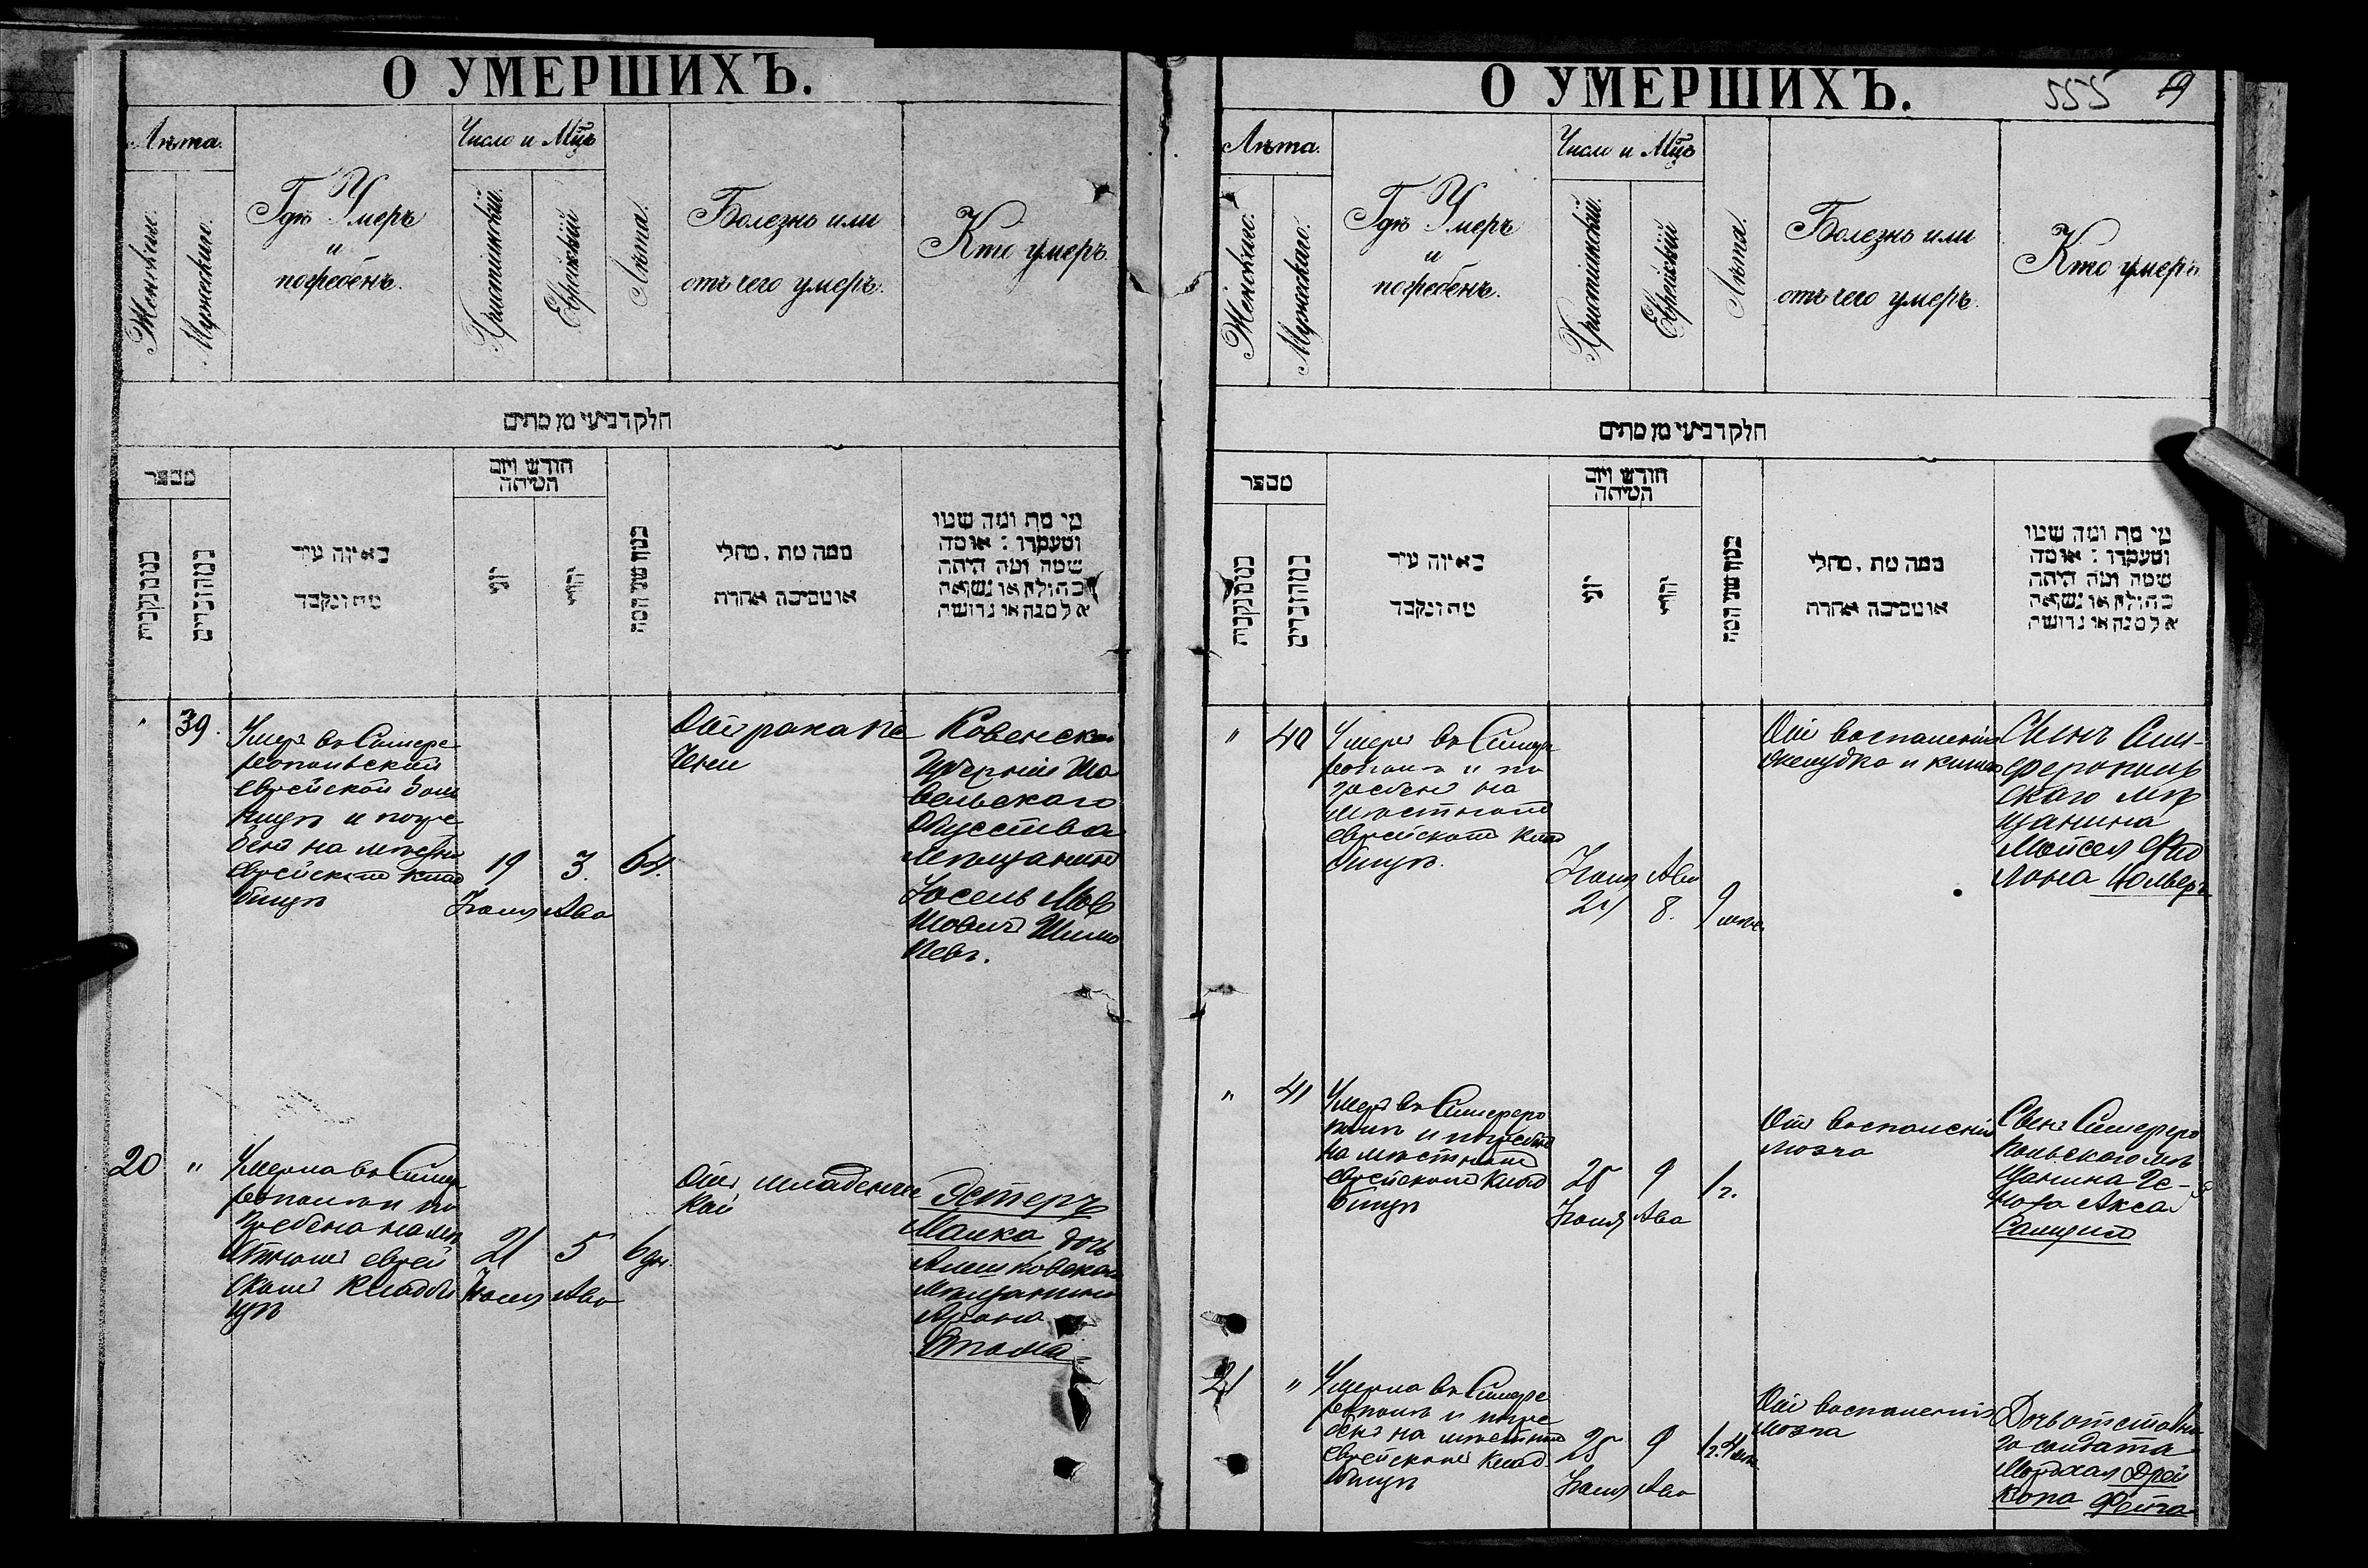 О УМЕРШИХЪ.
Лѣта.
Женскаго.
Мужескаго.
Гдѣ Умеръ
и
погребенъ.
Число и Мцъ
Христіянскій.
Еврейскій
Лѣта.
Болезнь или
отъ чего умеръ.
Кто умеръ.
חלק רביעי מן מתים
מספר
באיזה עיר
מת ונקבר
חודש ויום
המיתה
ממה מת, מחלי
או מסיבה אחרת
מי מת ומה שמו
ומעמדו: או מה
שמה ומה היתה
בתולה או נשואה
אלמנה או גרושה
" 39.
Умеръ въ Симфе
ропольской
Еврейской боль
ницѣ и погре
бенъ на мѣстн
Еврейскомъ клад
бищѣ
19
Іюля
3.
Ава
64.
Отъ рака пе
чени
Ковенской
Губерніи Ша
вельскаго
Общества
мѣщанинъ
Іосель Мов
шовичъ
20 "
Умерла въ Симф
рополѣ и по
гребена на мѣ
стномъ еврей
скомъ кладби
щѣ
21
Іюля
5
Ава
6 дн.
Отъ младенчес
кой
Эстеръ
Малка дочь
Алешковскаго
мѣщанина
Арона
О УМЕРШИХЪ.
555 19
Лѣта.
Женскаго.
Мужескаго.
Гдѣ Умеръ
и
погребенъ.
Число и Мцъ
Христіянскій.
Еврейскій
Лѣта.
Болезнь или
отъ чего умеръ.
Кто умеръ.
חלק רביעי מן מתים
מספר
באיזה עיר
מת ונקבר
חודש ויום
המיתה
ממה מת, מחלי
או מסיבה אחרת
מי מת ומה שמו
ומעמדו: או מה
שמה ומה היתה
בתולה או נשואה
אלמנה או גרושה
" 40
Умеръ въ Симфе
рополѣ и по
гребенъ на
мѣстномъ
еврейскомъ клад
бищѣ.
Іюля
24
Ава
8.
9 мѣс.
Отъ воспаленія
желудка и кишекъ
Сынъ Сим-
ферополь
скаго мѣ
щанина
Мойсея
" 41
Умеръ въ Симферо
полѣ и погребенъ
на мѣстномъ
еврейскомъ клад
бищѣ
25
Іюля
9
Ава
1 г.
Отъ воспаленія
мозга
Сынъ Симферо
польскаго мѣ
щанина
21 "
Умерла въ Симфе
рополѣ и погре
бена на мѣстномъ
Еврейскомъ клад
бищѣ
25
Іюля
9
Ава
1 г. 4 мѣс.
Отъ воспаленія
мозга
Дочь отставна
го солдата
Мордхая